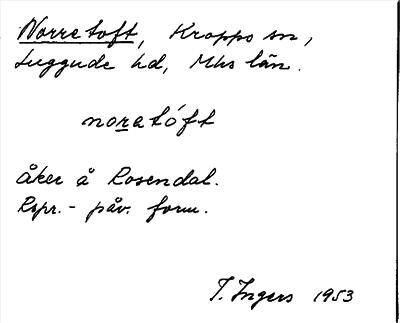 Norre toft, Kropps sn,
Luggude hd, Mhs län.
noratóft
åker å Rosendal.
Rspr. - påv. form.
T. Ingers 1953